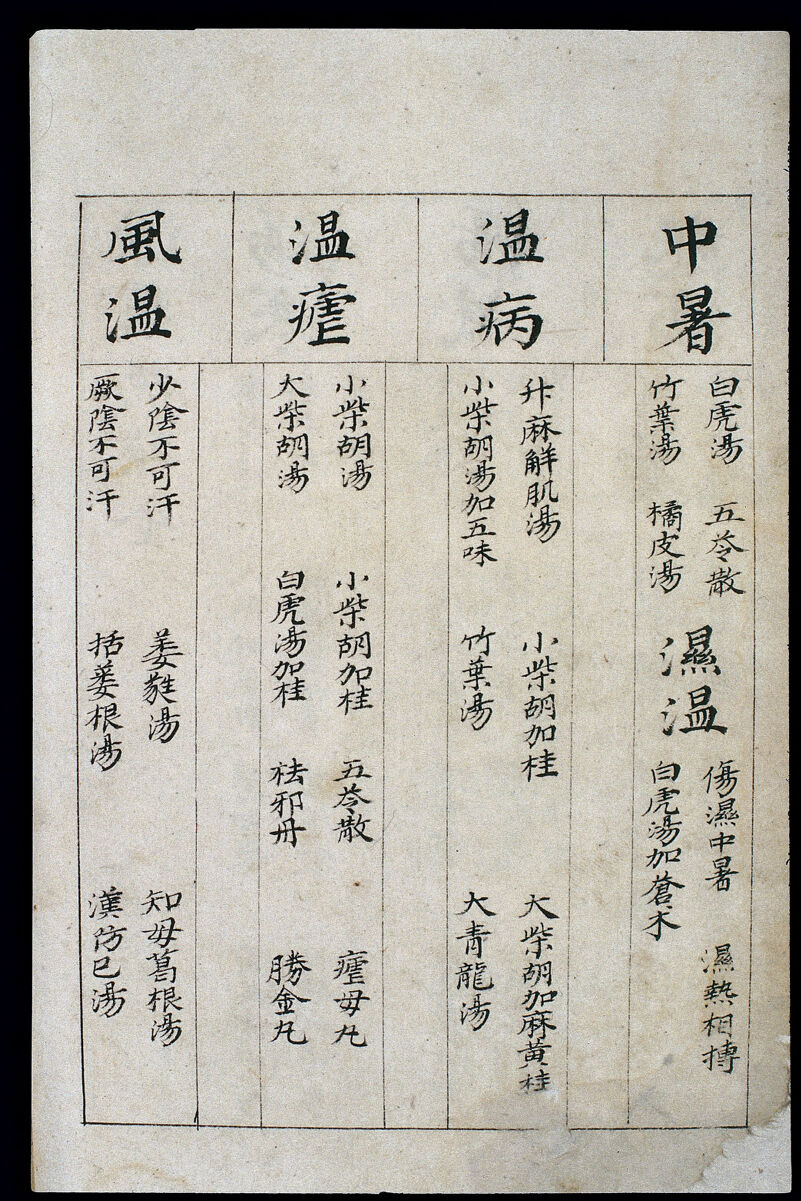 中暑
白虎湯 五苓散
竹葉湯 橘皮湯
濕温
傷濕中暑 濕熱相搏
白虎湯加蒼朮
温病
升麻解肌湯 小柴胡加桂 大柴胡加麻黄桂
小柴胡湯加五味 竹葉湯 大青龍湯
温瘧
小柴胡湯 小柴胡加桂 五苓散 瘧母丸
大柴胡湯 白虎湯加桂 祛邪丹 勝金丸
風温
少陰不可汗 萎蕤湯 知母葛根湯
厥陰不可汗 括蔞根湯 漢防已湯